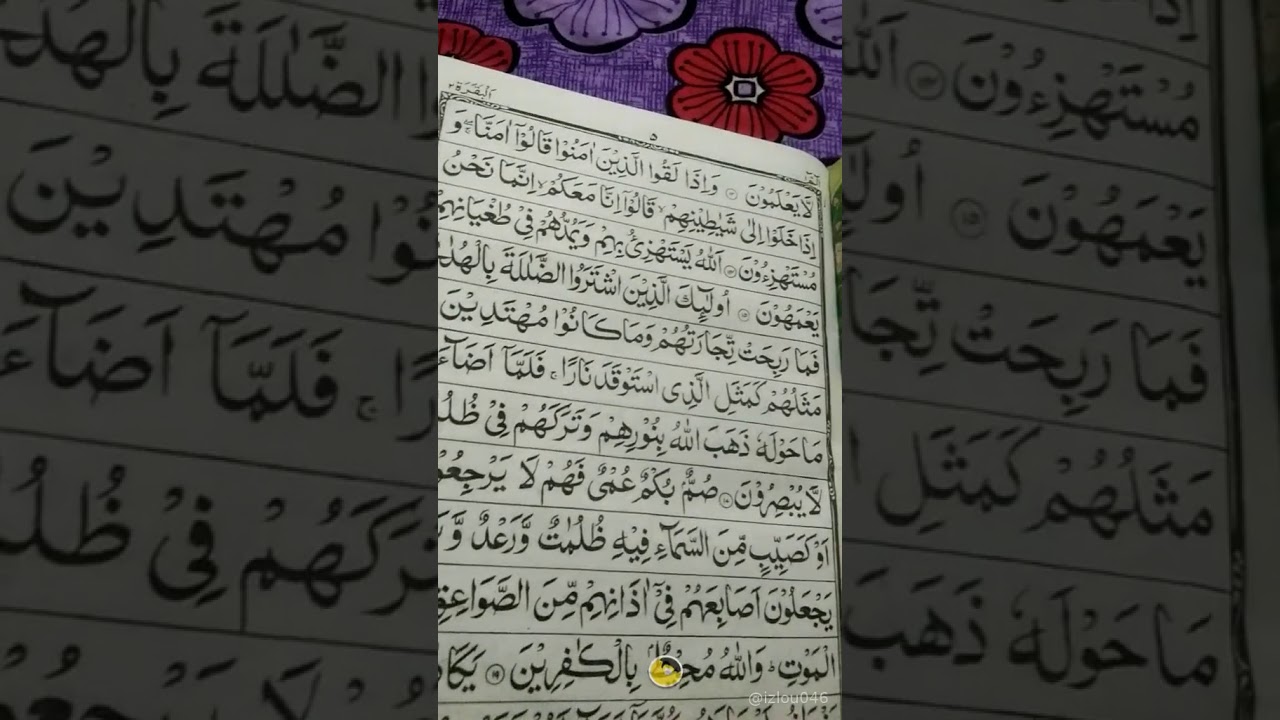 البقرة ٢
٥
لَّا يَعْلَمُوْنَ ۝۱۳ وَاِذَا لَقُوا الَّذِيْنَ اٰمَنُوْا قَالُوْٓا اٰمَنَّا ۚۖ وَ
اِذَا خَلَوْا اِلٰى شَيٰطِيْنِهِمْ ۙ قَالُوْٓا اِنَّا مَعَكُمْ ۙ اِنَّمَا نَحْنُ
مُسْتَهْزِءُوْنَ ۝۱۴ اَللّٰهُ يَسْتَهْزِئُ بِهِمْ وَيَمُدُّهُمْ فِيْ طُغْيَانِهِمْ
يَعْمَهُوْنَ ۝۱۵ اُولٰٓئِكَ الَّذِيْنَ اشْتَرَوُا الضَّلٰلَةَ بِالْهُدٰى
فَمَا رَبِحَتْ تِّجَارَتُهُمْ وَمَا كَانُوْا مُهْتَدِيْنَ
مَثَلُهُمْ كَمَثَلِ الَّذِى اسْتَوْقَدَ نَارًا ۚ فَلَمَّآ اَضَآءَ
مَا حَوْلَهٗ ذَهَبَ اللّٰهُ بِنُوْرِهِمْ وَتَرَكَهُمْ فِيْ
لَّا يُبْصِرُوْنَ ۝۱۷ صُمٌّۢ بُكْمٌ عُمْيٌ فَهُمْ لَا يَرْجِعُوْ
اَوْ كَصَيِّبٍ مِّنَ السَّمَآءِ فِيْهِ ظُلُمٰتٌ وَّرَعْدٌ وَّ
يَجْعَلُوْنَ اَصَابِعَهُمْ فِيْٓ اٰذَانِهِمْ مِّنَ الصَّوَاعِقِ
الْمَوْتِ ؕ وَاللّٰهُ بِالْكٰفِرِيْنَ ۝۱۹
@izlou046